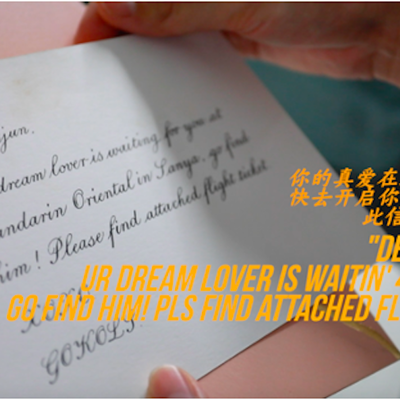 jun,
dream lover is waiting for you at
andarin Oriental in Sanya, go find
him! Please find attached flight ticket
你的真爱在
快去开启你
此信
"DE
UR DREAM LOVER IS WAITIN'
GO FIND HIM! PLS FIND ATTACHED FL